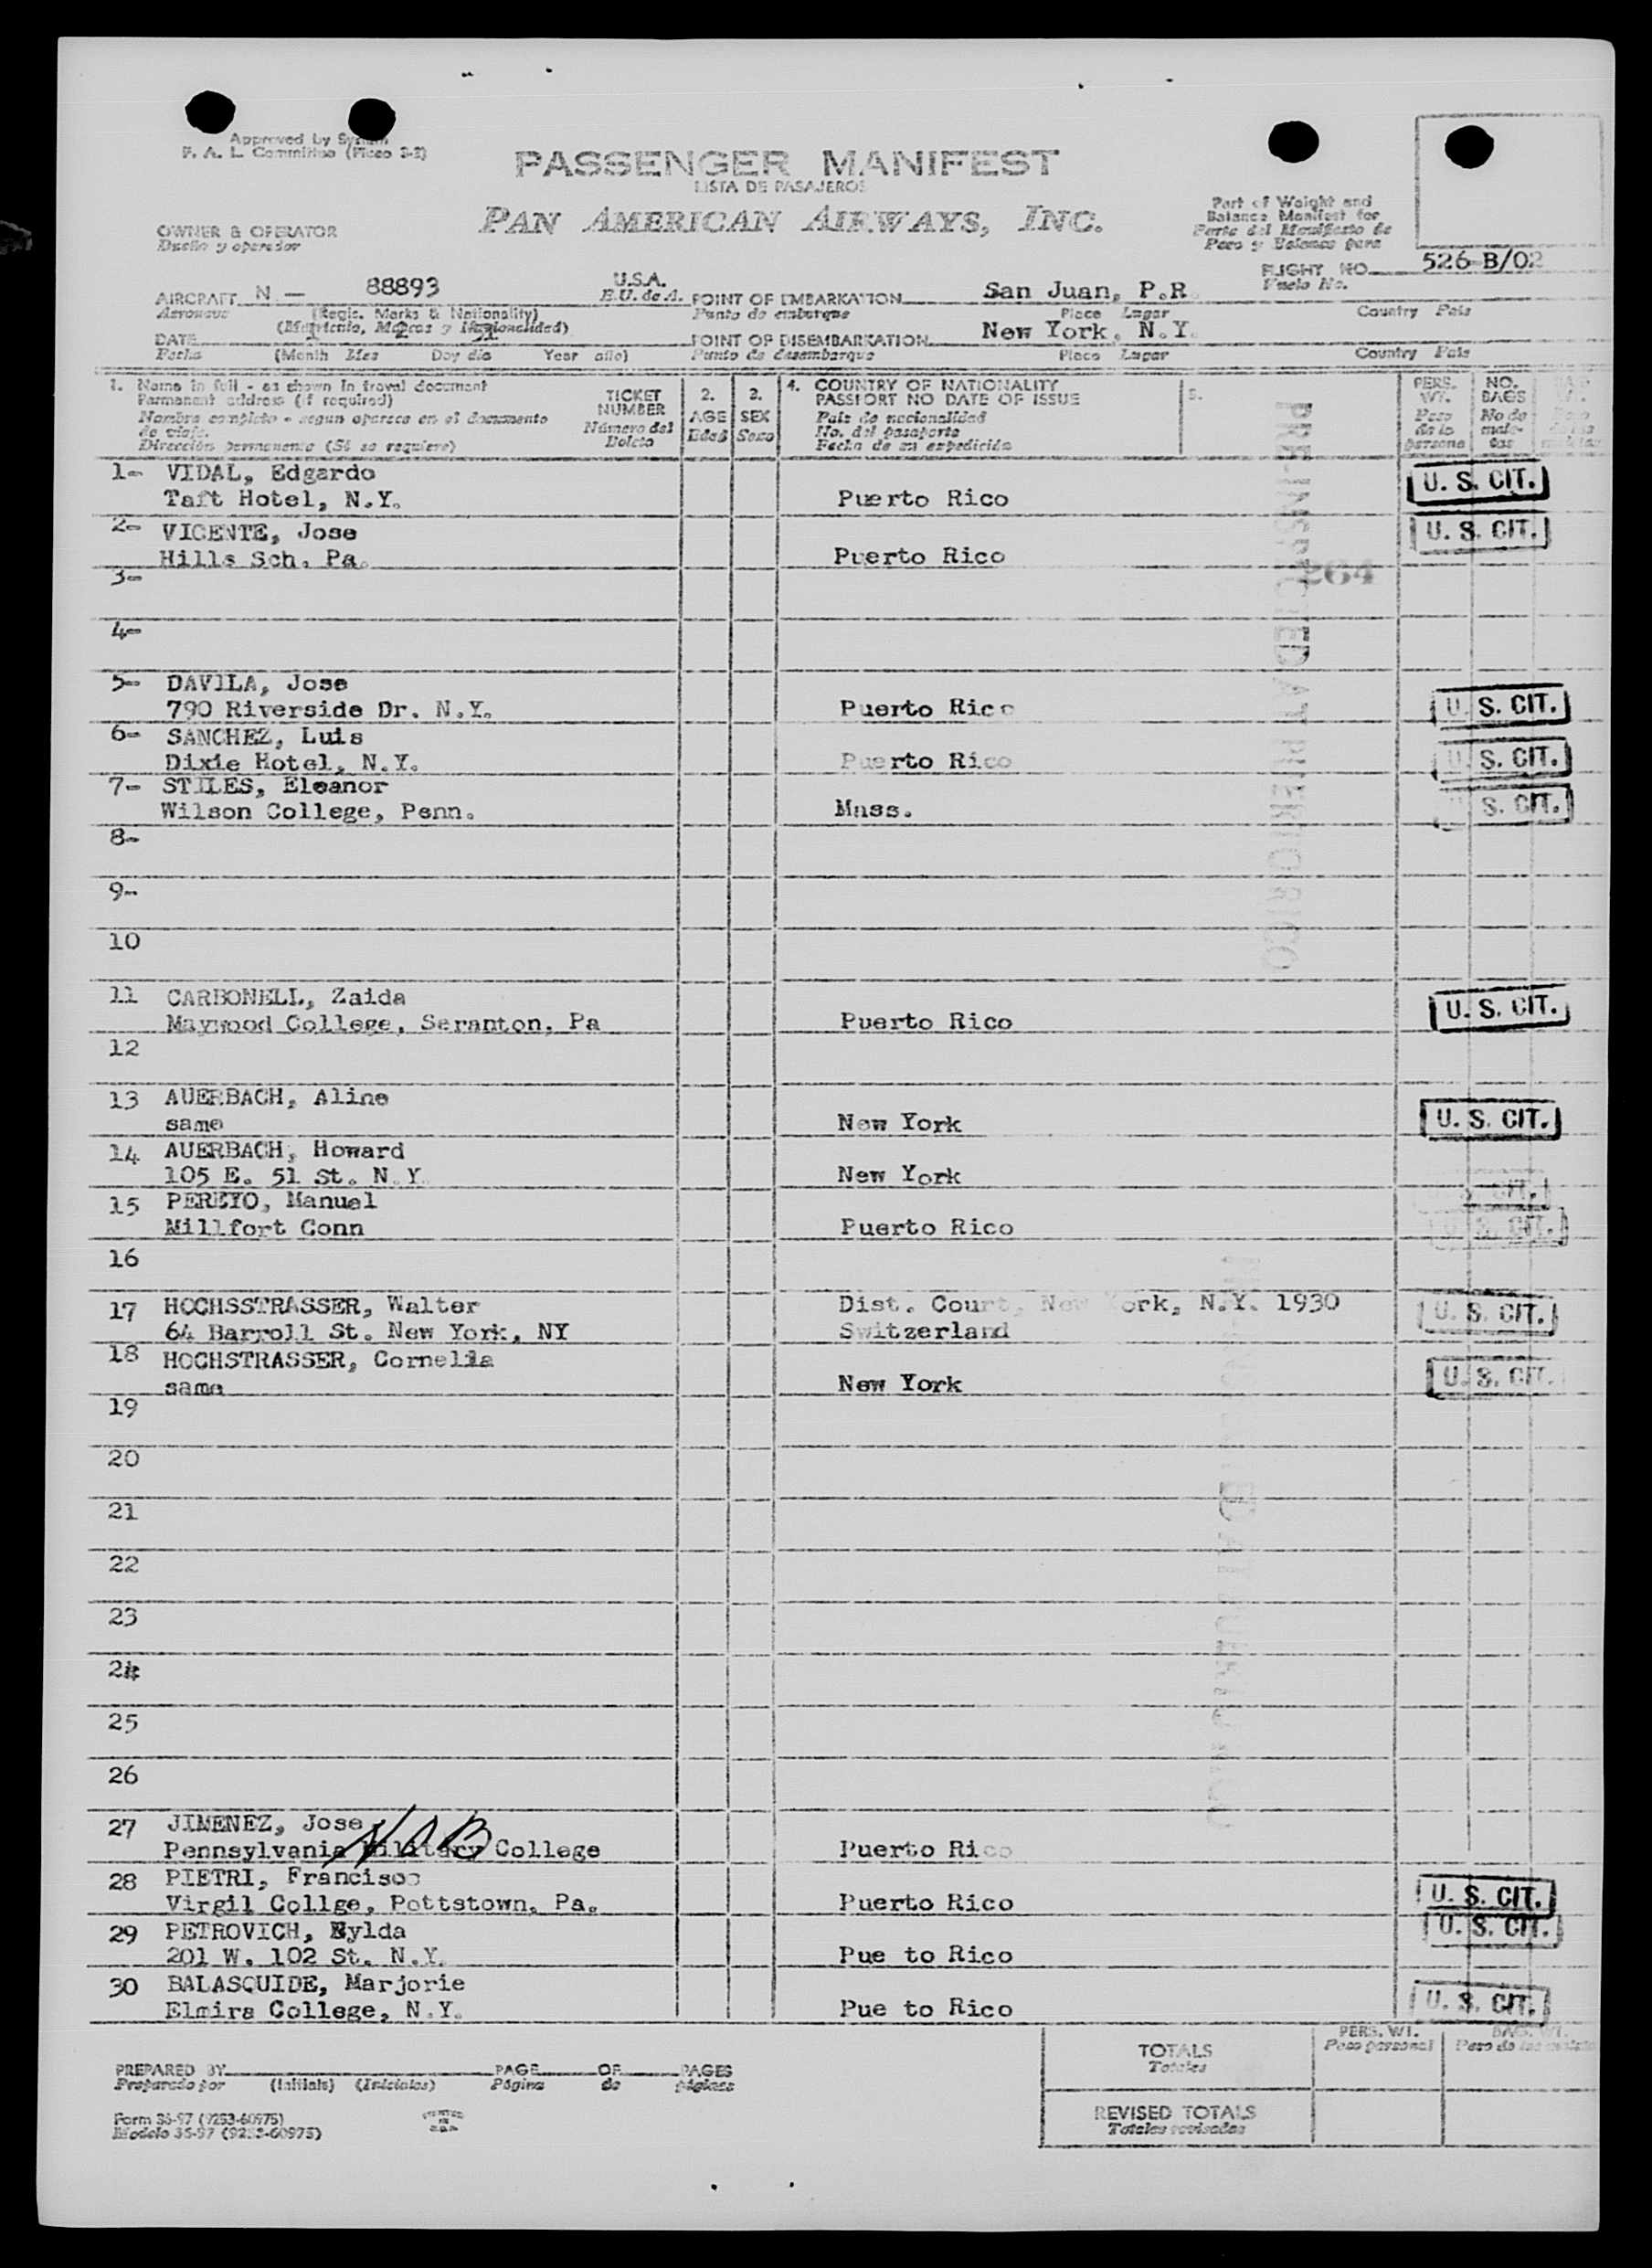 Approved by System
F. A. L. Committee (Fices 3-2)
PASSENGER MANIFEST
LISTA DE PASAJEROS
PAN AMERICAN AIRWAYS, INC.
OWNER & OPERATOR
Dueño y operador
Part of Weight and
Balance Manifest for
Parte del Manifiesto de
Peso y Balance para
FLIGHT NO. 526-B/02
Vuelo No.
AIRCRAFT N — 88893 U.S.A.
Aeronave (Regis. Marks & Nationality) E.U. de A.
(Matrícula, Marcas y Nacionalidad)
POINT OF EMBARKATION San Juan, P.R.
Punto de embarque Place Lugar Country País
DATE 1 2 51
Fecha (Month Mes Day día Year año)
POINT OF DISEMBARKATION New York, N.Y.
Punto de desembarque Place Lugar Country País
1. Name in full - as shown in travel document
Permanent address (if required)
Nombre completo - segun aparece en el documento
de viaje.
Dirección permanente (Si se requiere)
TICKET
NUMBER
Número del
Boleto
2.
AGE
Edad
3.
SEX
Sexo
4. COUNTRY OF NATIONALITY
PASSPORT NO DATE OF ISSUE
País de nacionalidad
No. del pasaporte
Fecha de su expedición
5.
PERS.
WT.
Peso
de la
persona
NO.
BAGS
No de
male-
tas
PRE-INSPECTED AT PUERTO RICO
264
1- VIDAL, Edgardo
Taft Hotel, N.Y. Puerto Rico U. S. CIT.
2- VICENTE, Jose
Hills Sch. Pa. Puerto Rico U. S. CIT.
3-
4-
5- DAVILA, Jose
790 Riverside Dr. N.Y. Puerto Rico U. S. CIT.
6- SANCHEZ, Luis
Dixie Hotel, N.Y. Puerto Rico U. S. CIT.
7- STILES, Eleanor
Wilson College, Penn. Mass. U. S. CIT.
8-
9-
10
11 CARBONELL, Zaida
Maywood College, Seranton, Pa Puerto Rico U. S. CIT.
12
13 AUERBACH, Aline
same New York U. S. CIT.
14 AUERBACH, Howard
105 E. 51 St. N.Y. New York U. S. CIT.
15 PEREYO, Manuel
Millfort Conn Puerto Rico U. S. CIT.
16
17 HOCHSSTRASSER, Walter Dist. Court, New York, N.Y. 1930
64 Barroll St. New York, NY Switzerland U. S. CIT.
18 HOCHSTRASSER, Cornelia
same New York U. S. CIT.
19
20
21
22
23
24
25
26
27 JIMENEZ, Jose
Pennsylvania Military College Puerto Rico
28 PIETRI, Francisco
Virgil Collge, Pottstown, Pa. Puerto Rico U. S. CIT.
29 PETROVICH, Eylda
201 W. 102 St. N.Y. Pue to Rico U. S. CIT.
30 BALASQUIDE, Marjorie
Elmira College, N.Y. Pue to Rico U. S. CIT.
PREPARED BY PAGE OF PAGES
Preparado por (Initials) (Iniciales) Página de páginas
TOTALS
Totales
PERS. WT.
Peso personal
BAG. WT.
REVISED TOTALS
Totales revisados
Form 36-97 (9253-60975)
Modelo 36-97 (9253-60975)